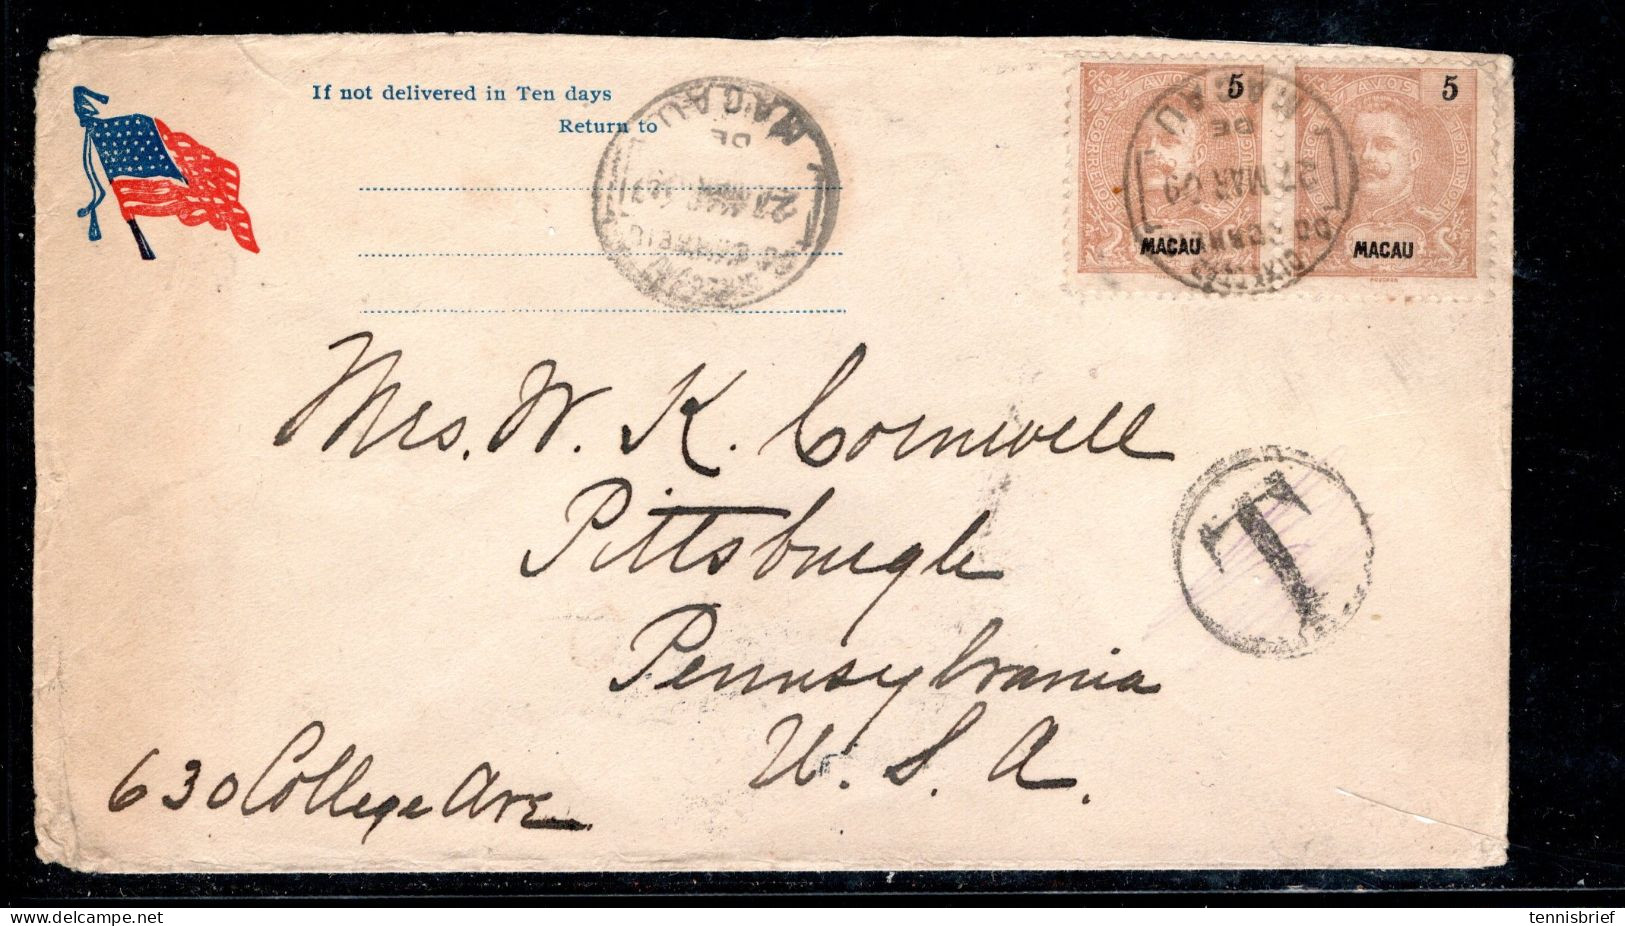 If not delivered in Ten days
Return to
MACAU
DE
27 MAR 09
AVOS
5
CORREIOS
PORTUGAL
MACAU
AVOS
5
CORREIOS
PORTUGAL
MACAU
MACAU
DE
27 MAR 09
Mrs. W. K. Cornwell
Pittsburgh
Pennsylvania
U. S. A.
630 College Ave
T
tennisbrief